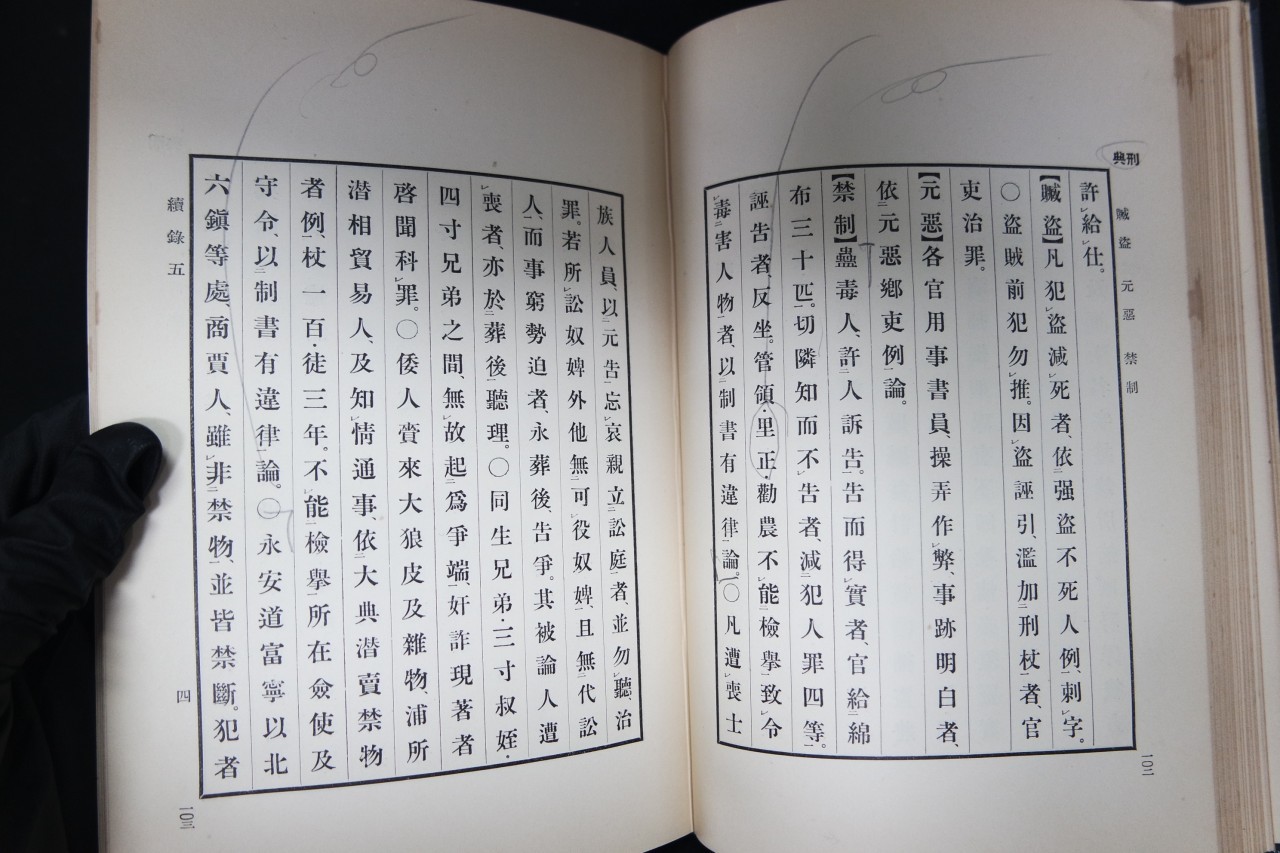 刑典
賊盜 元惡 禁制
許給仕。
【賊盜】凡犯盜減死者、依强盜不死人例、刺字。
○盜賊前犯勿推。因盜誣引、濫加刑杖者、官
吏治罪。
【元惡】各官用事書員、操弄作弊事跡明白者、
依元惡鄕吏例論。
【禁制】蠱毒人、許人訴告。告而得實者、官給綿
布三十匹。切隣知而不告者、減犯人罪四等。
誣告者、反坐。管領・里正・勸農不能檢擧、致令
毒害人物者、以制書有違律論。○凡遭喪士
一〇二
族人員、以元告忘哀親立訟庭者、並勿聽、治
罪。若所訟奴婢外他無可役奴婢、且無代訟
人、而事窮勢迫者、永葬後、告爭。其被論人遭
喪者、亦於葬後聽理。○同生兄弟・三寸叔姪・
四寸兄弟之間、無故起爲爭端、奸詐現著者
啓聞科罪。○倭人賫來大狼皮及雜物、浦所
潛相貿易人、及知情通事、依大典潛賣禁物
者例、杖一百・徒三年。不能檢擧所在僉使及
守令、以制書有違律論。○永安道富寧以北
六鎭等處、商賈人、雖非禁物、並皆禁斷。犯者
續錄五
四
一〇三